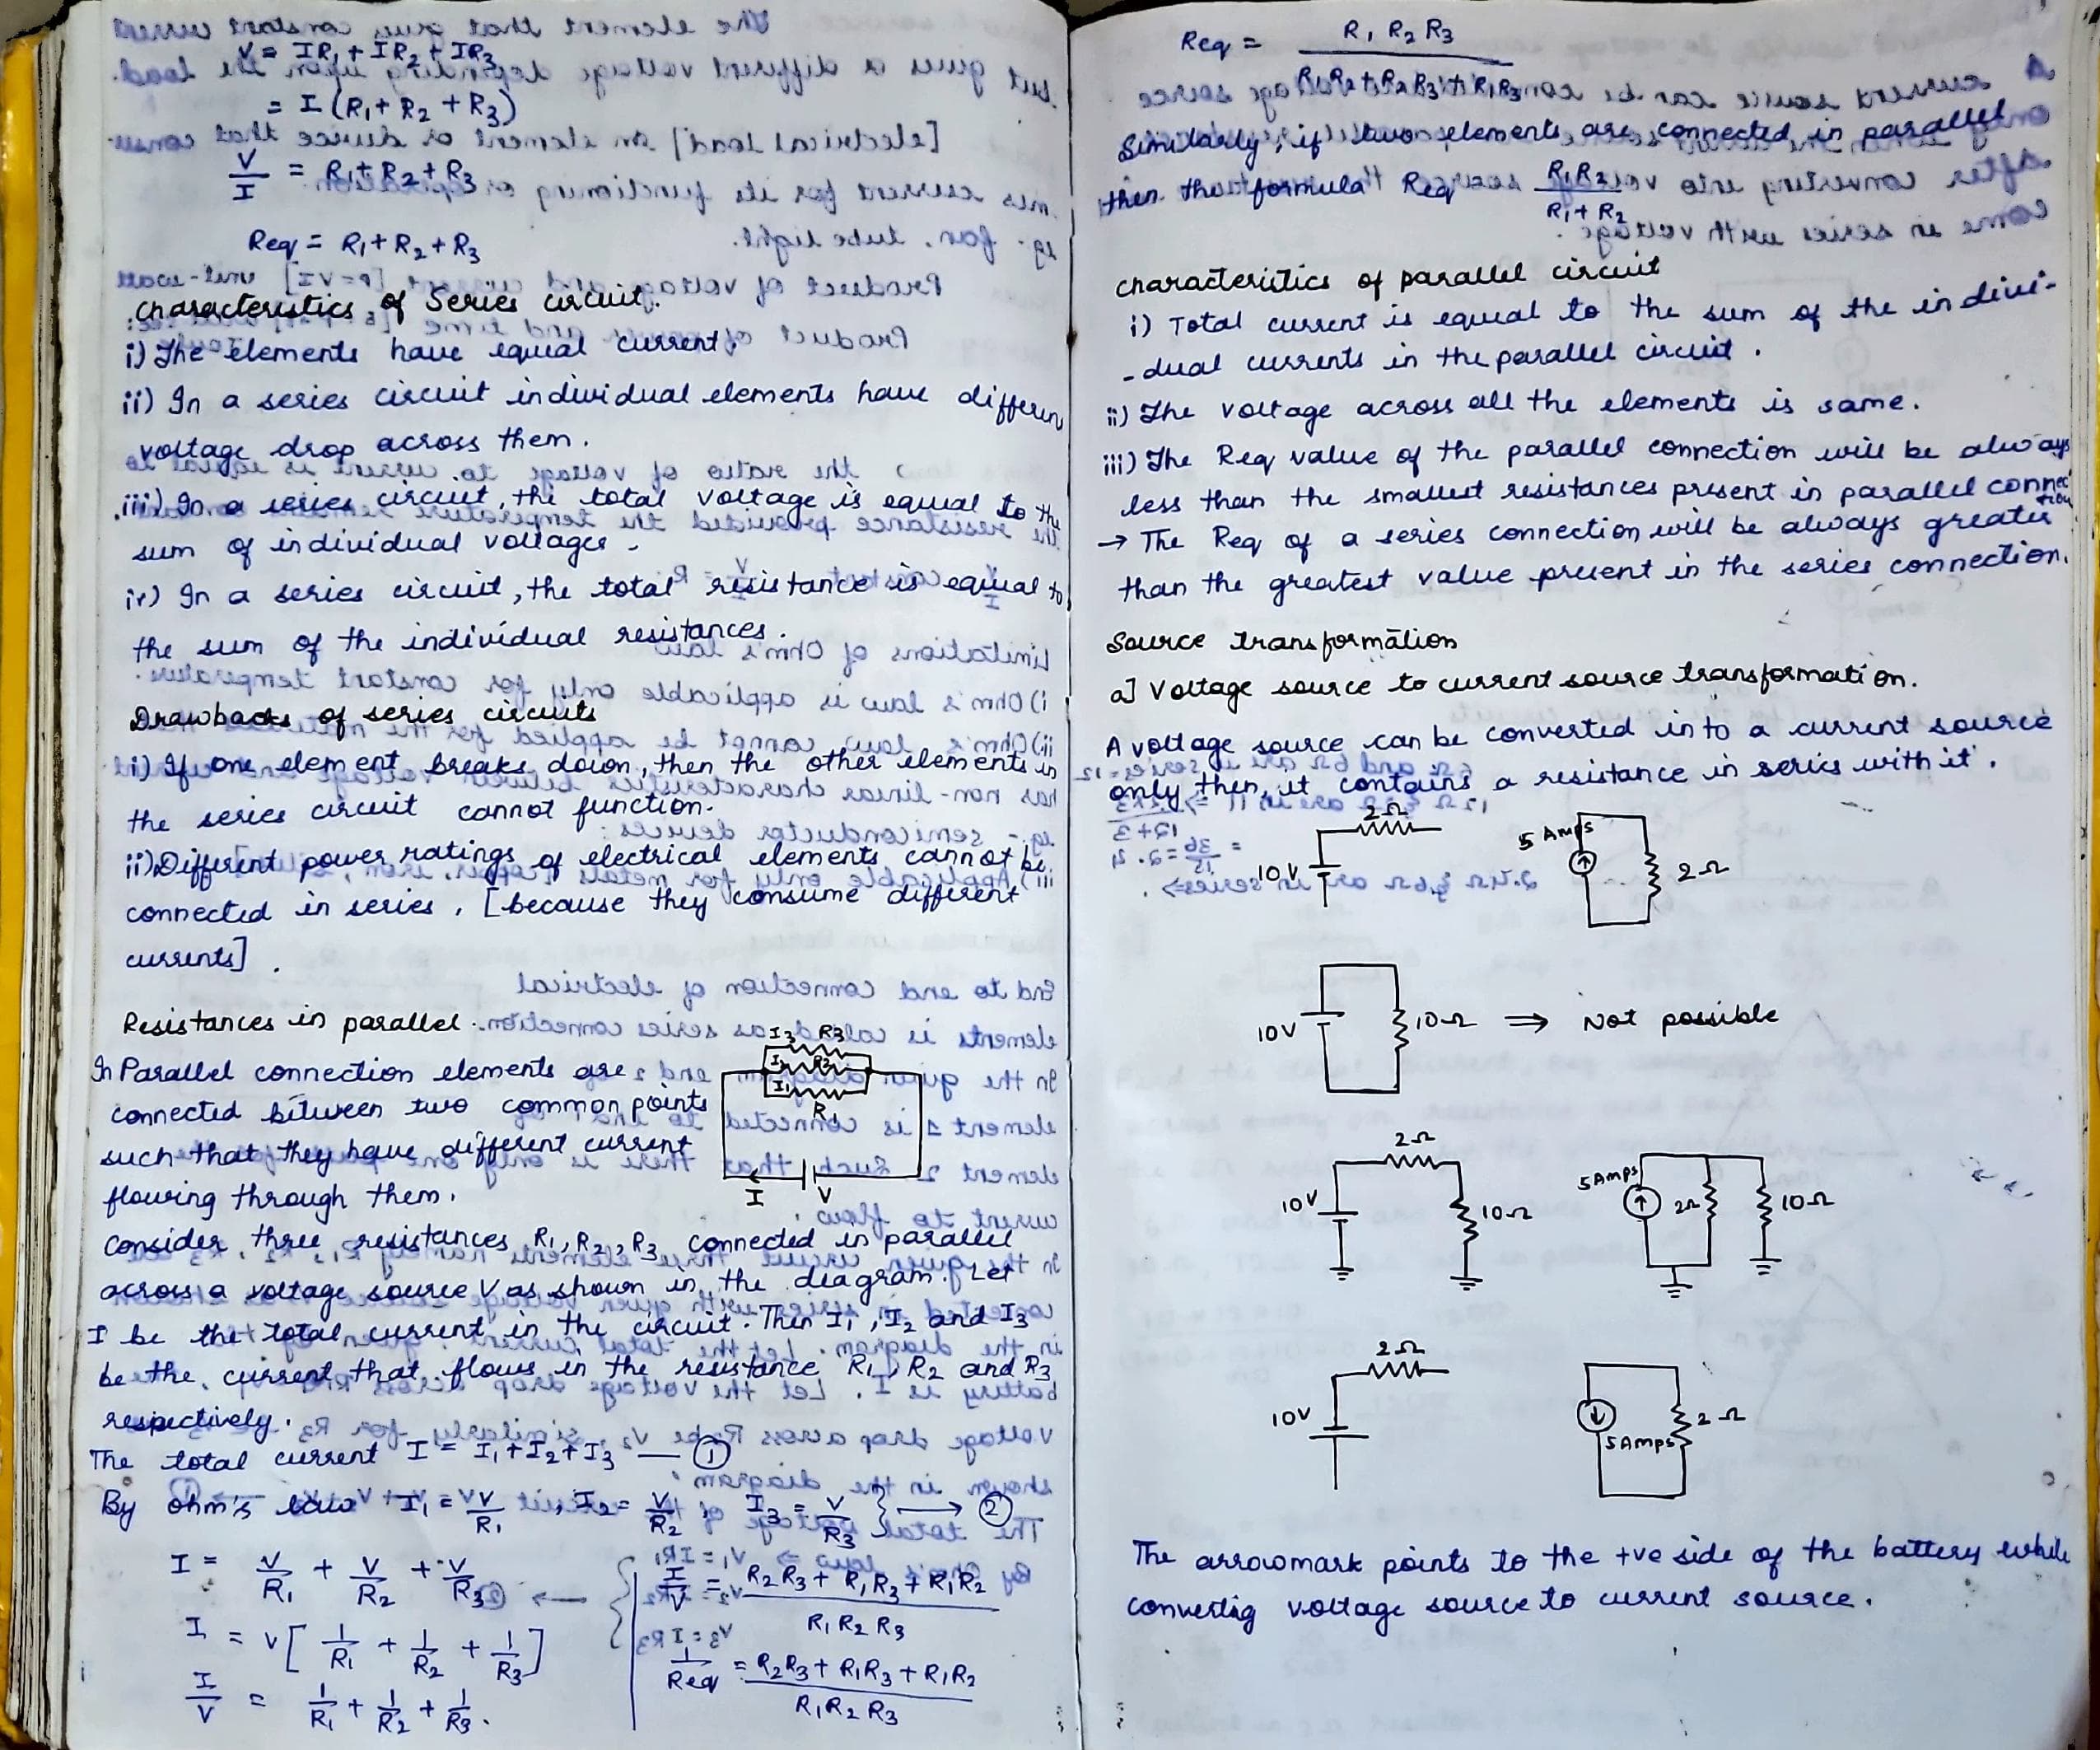 V = IR1 + IR2 + IR3
= I (R1 + R2 + R3)
V/I = R1 + R2 + R3
Req = R1 + R2 + R3
characteristics of Series circuit.
i) The elements have equal current.
ii) In a series circuit individual elements have differen
voltage drop across them.
iii) In a series circuit, the total voltage is equal to the
sum of individual voltages.
iv) In a series circuit, the total resistance is equal to
the sum of the individual resistances.
Drawbacks of series circuits
i) If one element breaks down, then the other elements in
the series circuit cannot function.
ii) Different power ratings of electrical elements cannot be
connected in series, [because they consume different
currents].
Resistances in parallel.
In Parallel connection elements are
connected between two common points
such that they have different current
flowing through them.
I3 R3
I2 R2
I1
R1
I V
consider, three resistances R1, R2, R3 connected in parallel
across a voltage source V as shown in the diagram. Let
I be the total current in the circuit. Then I1, I2 and I3
be the current that flows in the resistance R1, R2 and R3
respectively.
The total current I = I1 + I2 + I3 — ①
By ohm's law I1 = V/R1, I2 = V/R2, I3 = V/R3 } → ②
I = V/R1 + V/R2 + V/R3
I = V [1/R1 + 1/R2 + 1/R3]
I/V = 1/R1 + 1/R2 + 1/R3.
I/V = R2R3 + R1R3 + R1R2 / R1 R2 R3
1/Req = R2R3 + R1R3 + R1R2 / R1R2 R3
Req = R1 R2 R3 / R1R2 + R2R3 + R1R3
Similarly, if two elements are connected in parallel
then the formula Req = R1R2 / R1 + R2
characteristics of parallel circuit
i) Total current is equal to the sum of the indivi-
-dual currents in the parallel circuit.
ii) The voltage across all the elements is same.
iii) The Req value of the parallel connection will be always
less than the smallest resistances present in parallel connec
tion
→ The Req of a series connection will be always greater
than the greatest value present in the series connection.
Source transformation
a] Voltage source to current source transformation.
A voltage source can be converted into a current source
only then, it contains a resistance in series with it.
2Ω
10V
5 Amps
2Ω
10V 10Ω ⇒ Not possible
2Ω
10V 10Ω
5Amps 2Ω 10Ω
2Ω
10V
5Amps 2Ω
The arrowmark points to the +ve side of the battery while
convertig voltage source to current source.